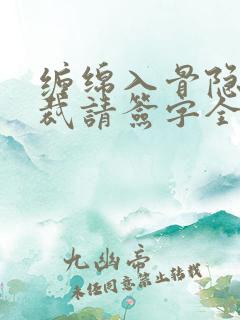 缠绵入骨隐
裁請簽字全
九幽帝
未经同意禁止转载